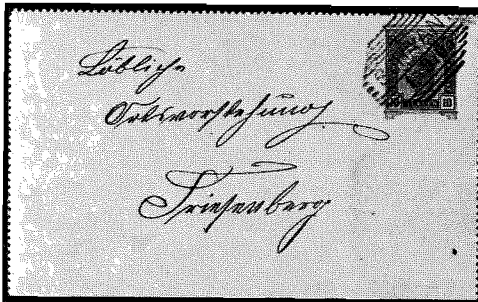 Löbliche
Ortsvorstehung
Triesenberg
10 10